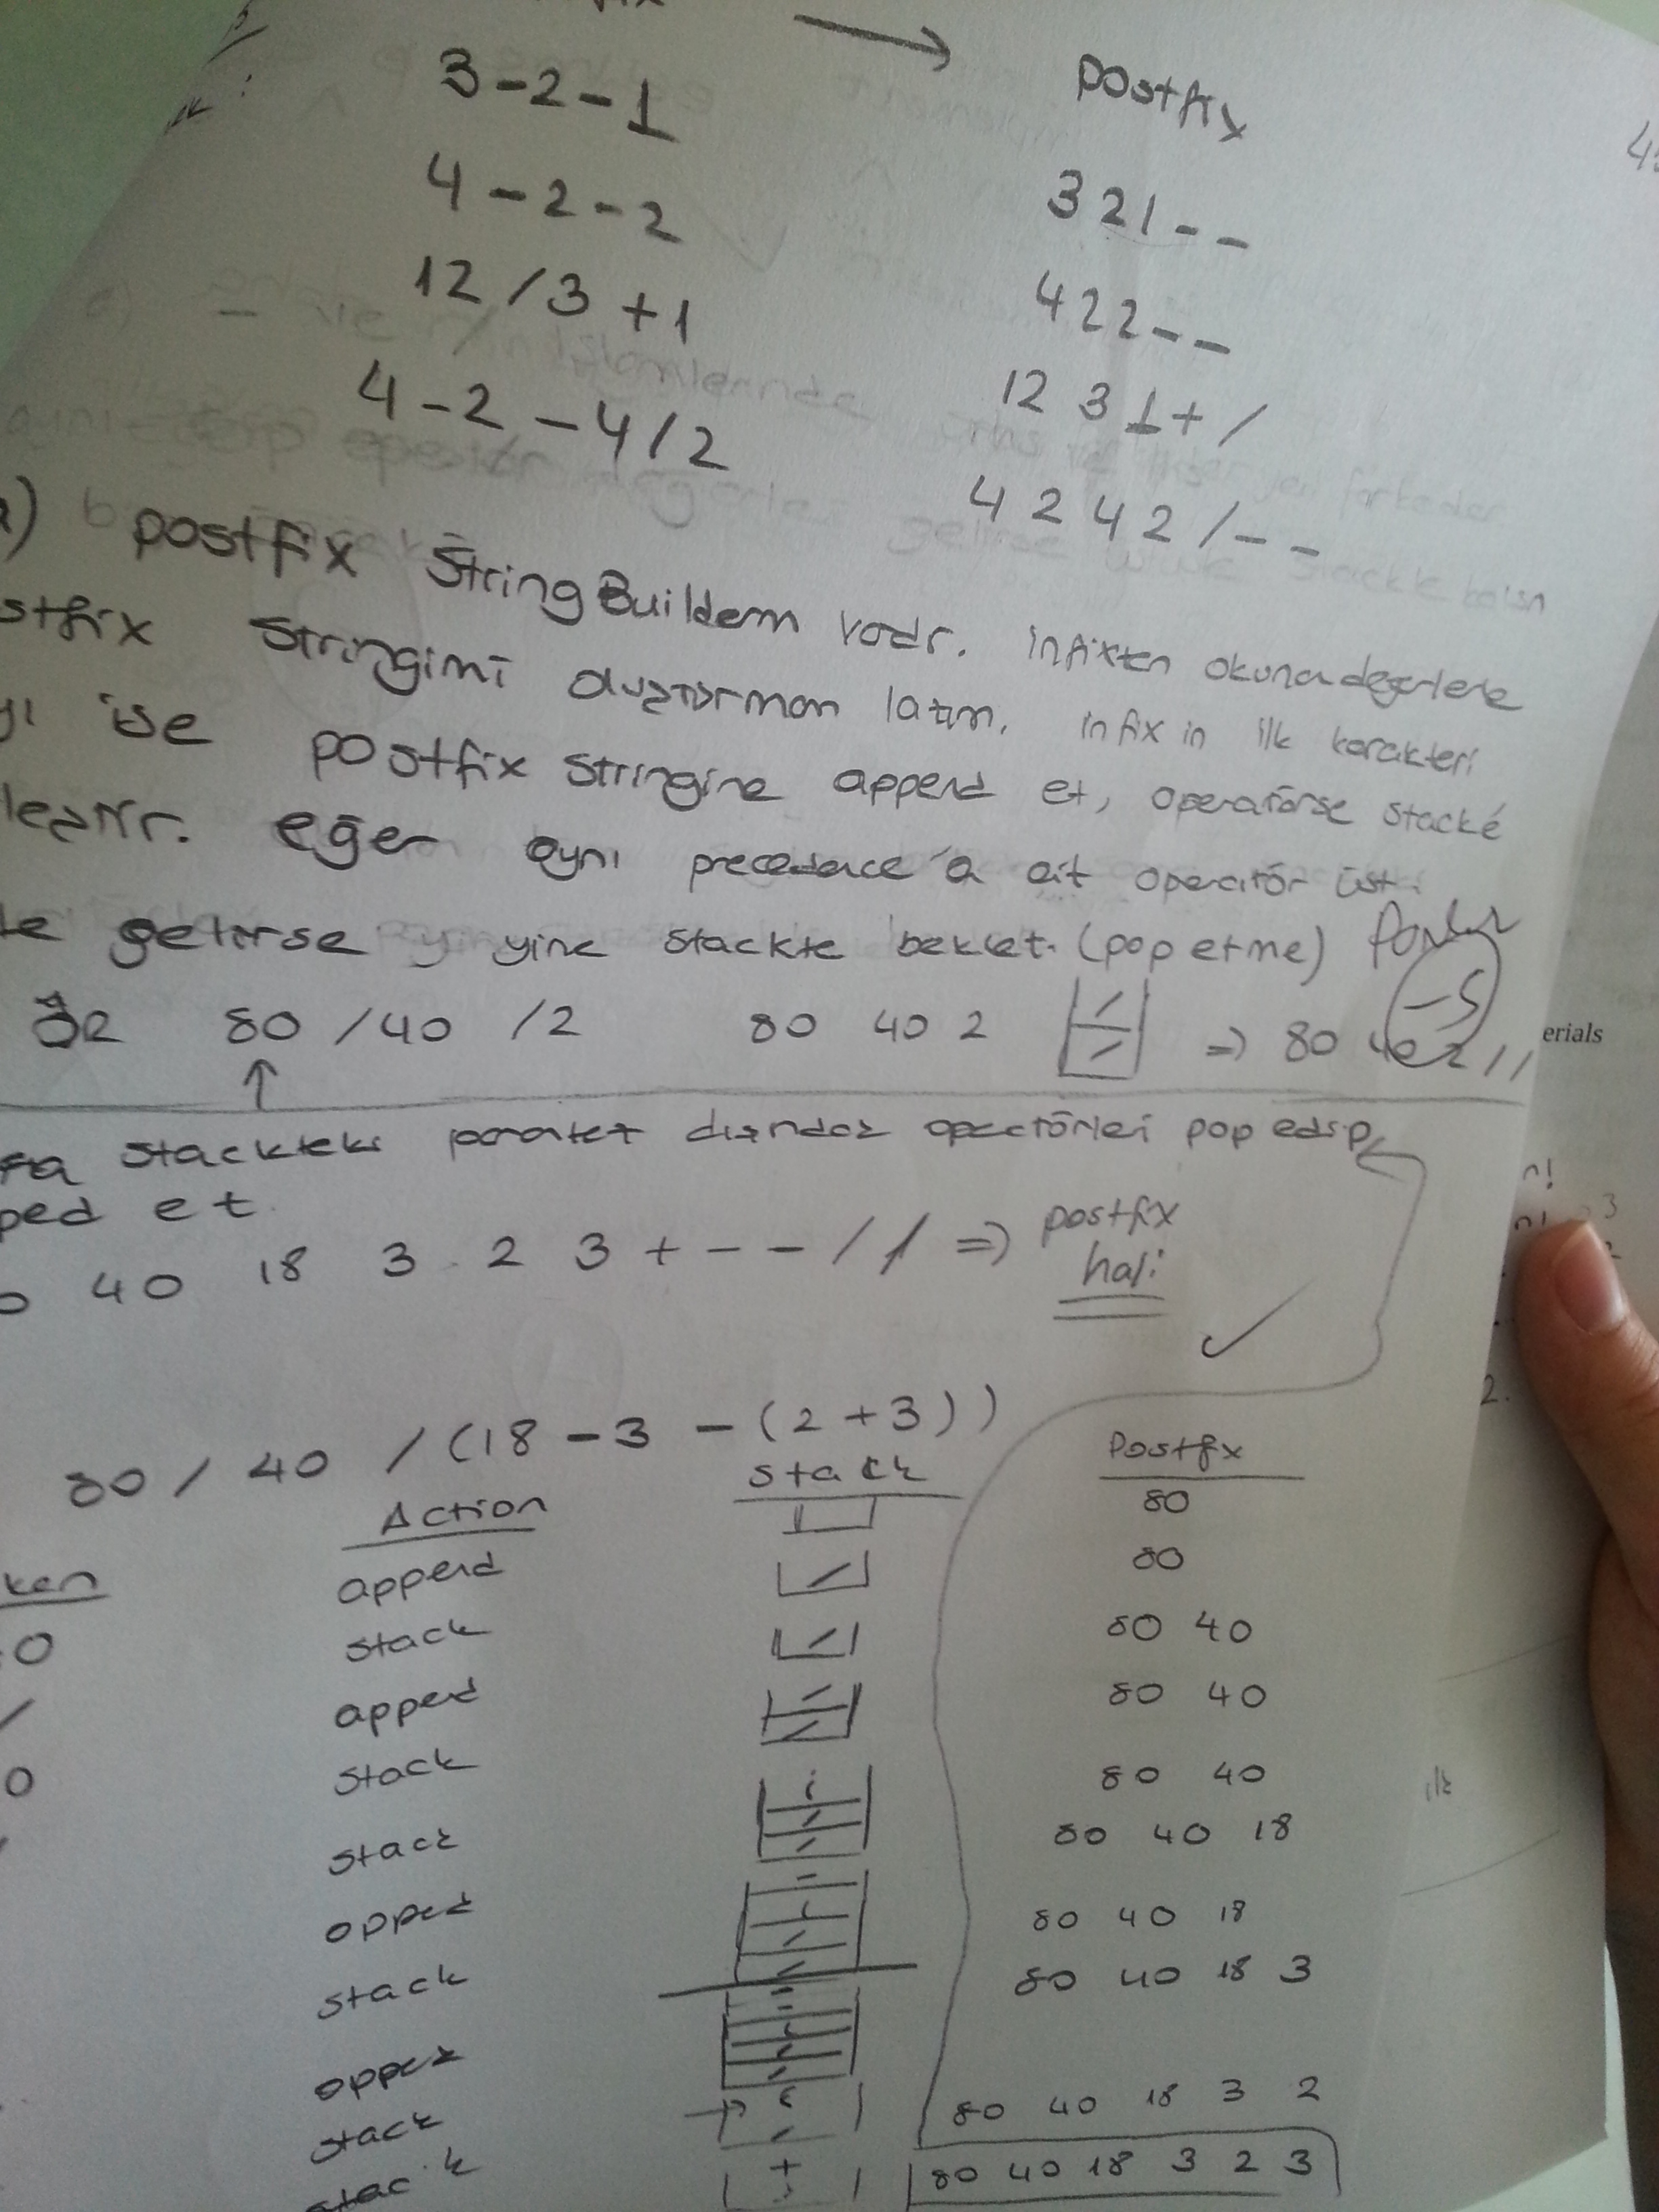 3-2-1
postfix
4-2-2
321--
12/3+1
422--
4-2-4/2
12 3 1+/
4 2 4 2/--
postfix StringBuilderım vardır. infixten okunan değerlerle
stfix Stringimi oluşturmam lazım. infixin ilk karakteri
yı ise postfix Stringine append et, operatörse stack'e
leştir. eğer aynı precedence'a ait operatör üst
te gelirse yine stackte beklet. (pop etme)
Ör 80 /40 /2 80 40 2 => 80 40 2 //
erials
stackteki parantez dışındaki operatörleri pop edip
pped et
40 18 3 2 3 + - - / / => postfix hali
80 / 40 / (18 - 3 - (2 + 3))
ken Action stack Postfix
80
append 80
0 stack 80 40
/ append 80 40
0 stack 80 40
stack 80 40 18
append 80 40 18
stack 80 40 18 3
append
stack 80 40 18 3 2
stack + 80 40 18 3 2 3